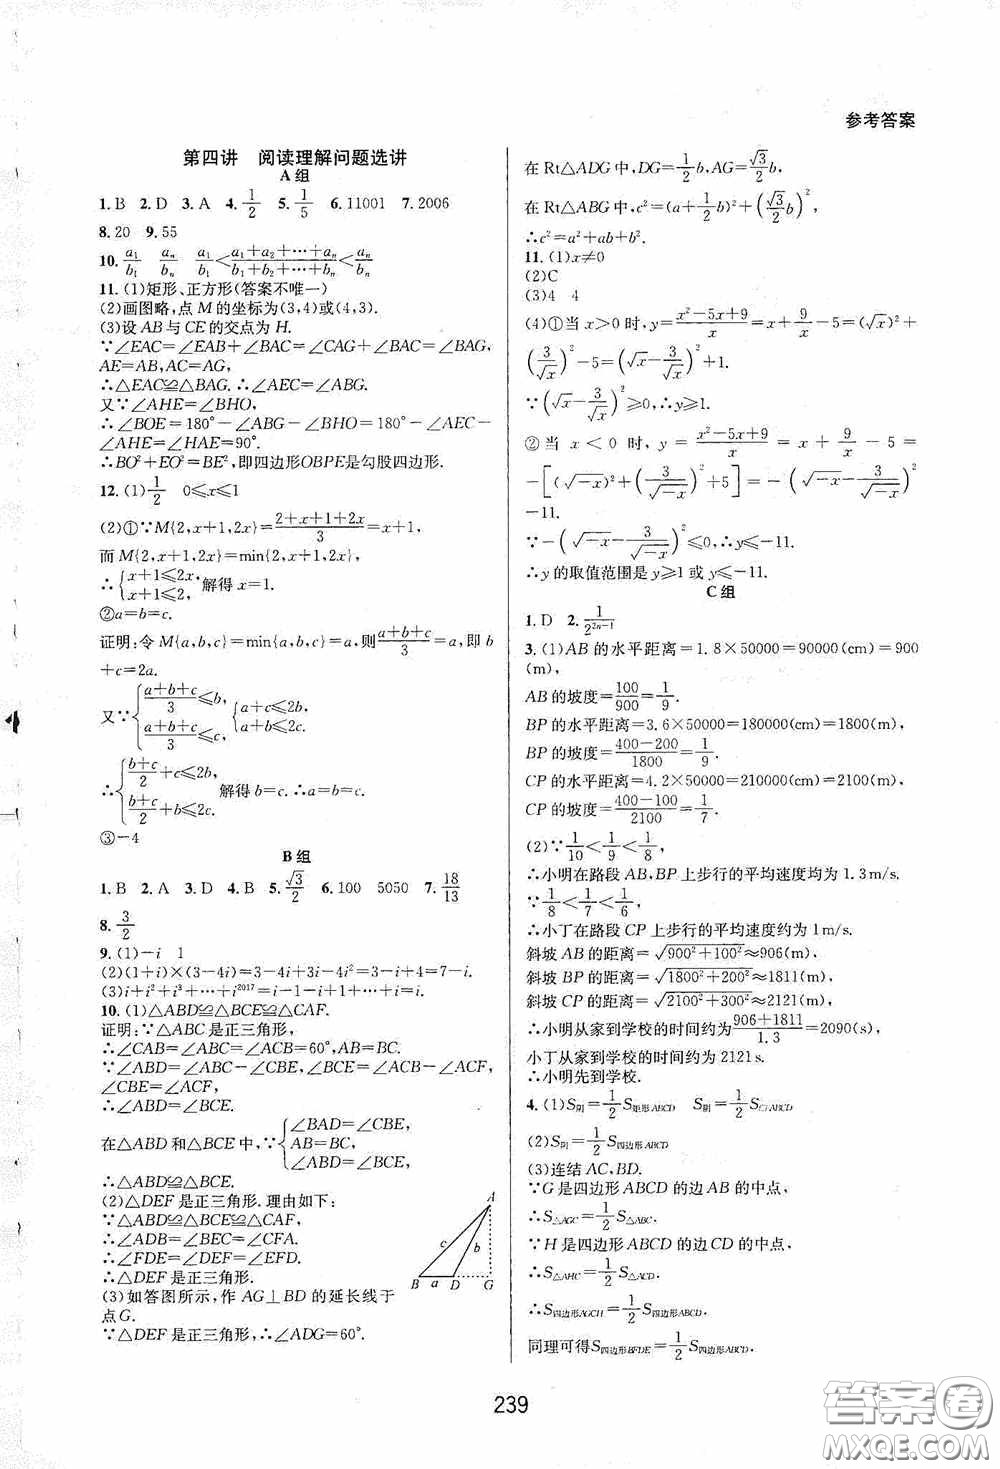 参考答案
第四讲 阅读理解问题选讲
A组
1.B 2.D 3.A 4.1/2 5.1/5 6.11001 7.2006
8.20 9.55
10.a₁/b₁ aₙ/bₙ a₁/b₁<(a₁+a₂+…+aₙ)/(b₁+b₂+…+bₙ)<aₙ/bₙ
11.(1)矩形、正方形(答案不唯一)
(2)画图略,点M的坐标为(3,4)或(4,3).
(3)设AB与CE的交点为H.
∵∠EAC=∠EAB+∠BAC=∠CAG+∠BAC=∠BAG,
AE=AB,AC=AG,
∴△EAC≌△BAG.∴∠AEC=∠ABG.
又∵∠AHE=∠BHO,
∴∠BOE=180°-∠ABG-∠BHO=180°-∠AEC-
∠AHE=∠HAE=90°.
∴BO²+EO²=BE²,即四边形OBPE是勾股四边形.
12.(1)1/2 0≤x≤1
(2)①∵M{2,x+1,2x}=(2+x+1+2x)/3=x+1,
而M{2,x+1,2x}=min{2,x+1,2x},
∴{x+1≤2x,
x+1≤2. 解得x=1.
②a=b=c.
证明:令M{a,b,c}=min{a,b,c}=a,则(a+b+c)/3=a,即b
+c=2a.
又∵{(a+b+c)/3≤b, {a+c≤2b,
(a+b+c)/3≤c, a+b≤2c.
∴{(b+c)/2+c≤2b,
(b+c)/2+b≤2c. 解得b=c.∴a=b=c.
③-4
B组
1.B 2.A 3.D 4.B 5.√3/2 6.100 5050 7.18/13
8.3/2
9.(1)-i 1
(2)(1+i)×(3-4i)=3-4i+3i-4i²=3-i+4=7-i.
(3)i+i²+i³+…+i²⁰¹⁷=i-1-i+1+…+i=i.
10.(1)△ABD≌△BCE≌△CAF.
证明:∵△ABC是正三角形,
∴∠CAB=∠ABC=∠ACB=60°,AB=BC.
∵∠ABD=∠ABC-∠CBE,∠BCE=∠ACB-∠ACF,
∠CBE=∠ACF,
∴∠ABD=∠BCE.
在△ABD和△BCE中,∵{∠BAD=∠CBE,
AB=BC,
∠ABD=∠BCE,
∴△ABD≌△BCE.
(2)△DEF是正三角形.理由如下:
∵△ABD≌△BCE≌△CAF,
∴∠ADB=∠BEC=∠CFA.
∴∠FDE=∠DEF=∠EFD.
∴△DEF是正三角形.
(3)如答图所示,作AG⊥BD的延长线于
点G.
∵△DEF是正三角形,∴∠ADG=60°.
A
c
b
B a D G
在Rt△ADG中,DG=1/2b,AG=√3/2b,
在Rt△ABG中,c²=(a+1/2b)²+(√3/2b)²,
∴c²=a²+ab+b².
11.(1)x≠0
(2)C
(3)4 4
(4)①当x>0时,y=(x²-5x+9)/x=x+9/x-5=(√x)²+
(3/√x)²-5=(√x-3/√x)²+1.
∵(√x-3/√x)²≥0,∴y≥1.
②当x<0时,y=(x²-5x+9)/x=x+9/x-5=
-[(√-x)²+(3/√-x)²+5]=-(√-x-3/√-x)²
-11.
∵-(√-x-3/√-x)²≤0,∴y≤-11.
∴y的取值范围是y≥1或y≤-11.
C组
1.D 2.1/2²ⁿ⁻¹
3.(1)AB的水平距离=1.8×50000=90000(cm)=900
(m),
AB的坡度=100/900=1/9.
BP的水平距离=3.6×50000=180000(cm)=1800(m),
BP的坡度=(400-200)/1800=1/9.
CP的水平距离=4.2×50000=210000(cm)=2100(m),
CP的坡度=(400-100)/2100=1/7.
(2)∵1/10<1/9<1/8,
∴小明在路段AB,BP上步行的平均速度均为1.3m/s.
∵1/8<1/7<1/6,
∴小丁在路段CP上步行的平均速度约为1m/s.
斜坡AB的距离=√(900²+100²)≈906(m),
斜坡BP的距离=√(1800²+200²)≈1811(m),
斜坡CP的距离=√(2100²+300²)≈2121(m),
∴小明从家到学校的时间约为(906+1811)/1.3=2090(s),
小丁从家到学校的时间约为2121s.
∴小明先到学校.
4.(1)S阴=1/2S矩形ABCD S阴=1/2S▱ABCD
(2)S阴=1/2S四边形ABCD
(3)连结AC,BD.
∵G是四边形ABCD的边AB的中点,
∴S△AGC=1/2S△ABC.
∵H是四边形ABCD的边CD的中点,
∴S△AHC=1/2S△ACD.
∴S四边形AGCH=1/2S四边形ABCD.
同理可得S四边形BFDE=1/2S四边形ABCD,
239
答案卷
MXQE.COM